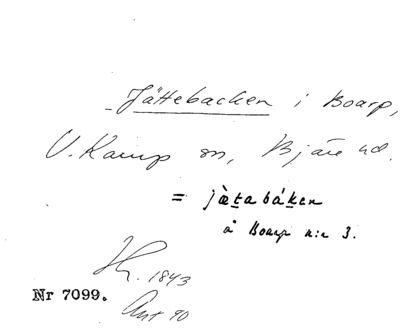 Jättebacken i Boarp,
V. Karup sn, Bjäre hd.
= jàtabákan
å Boarp n:r 3.
1843
Nr 7099.
Ant 90